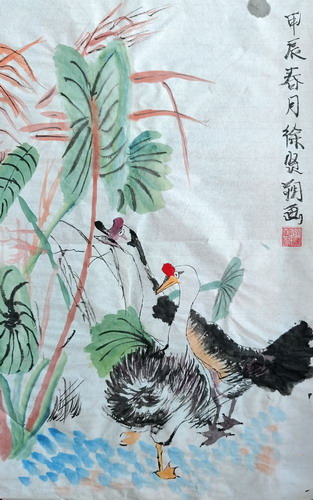 甲辰春月徐贤朔画